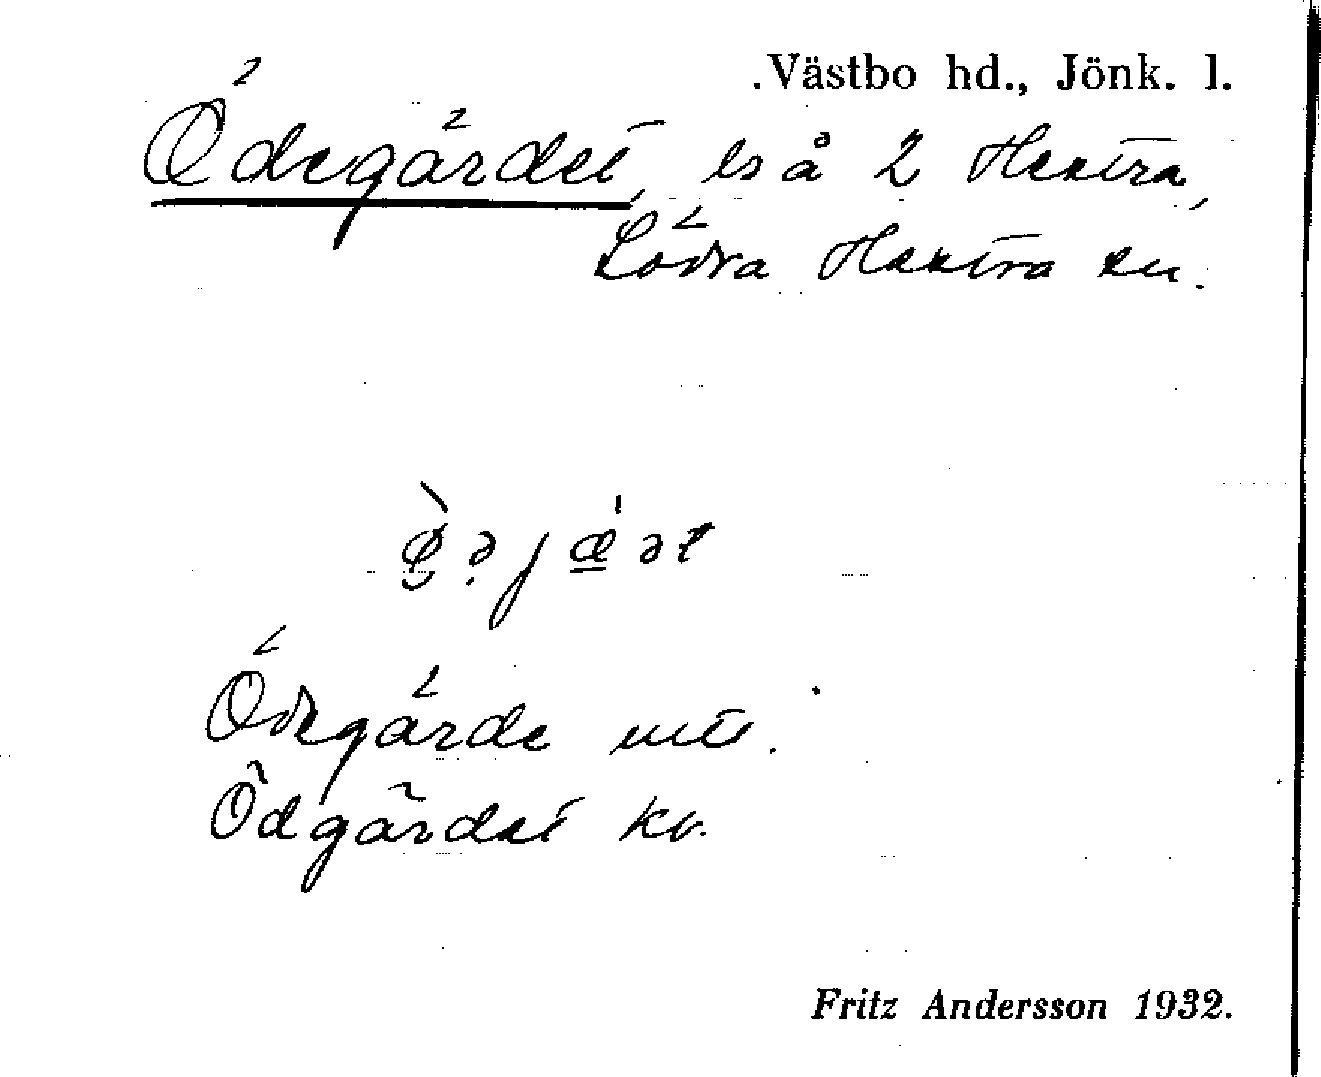 Västbo hd., Jönk. l.
Ödegärdet, ls å 2 Hestra,
Södra Hestra sn.
Ödegärde mtl.
Ödgärdet kv.
Fritz Andersson 1932.